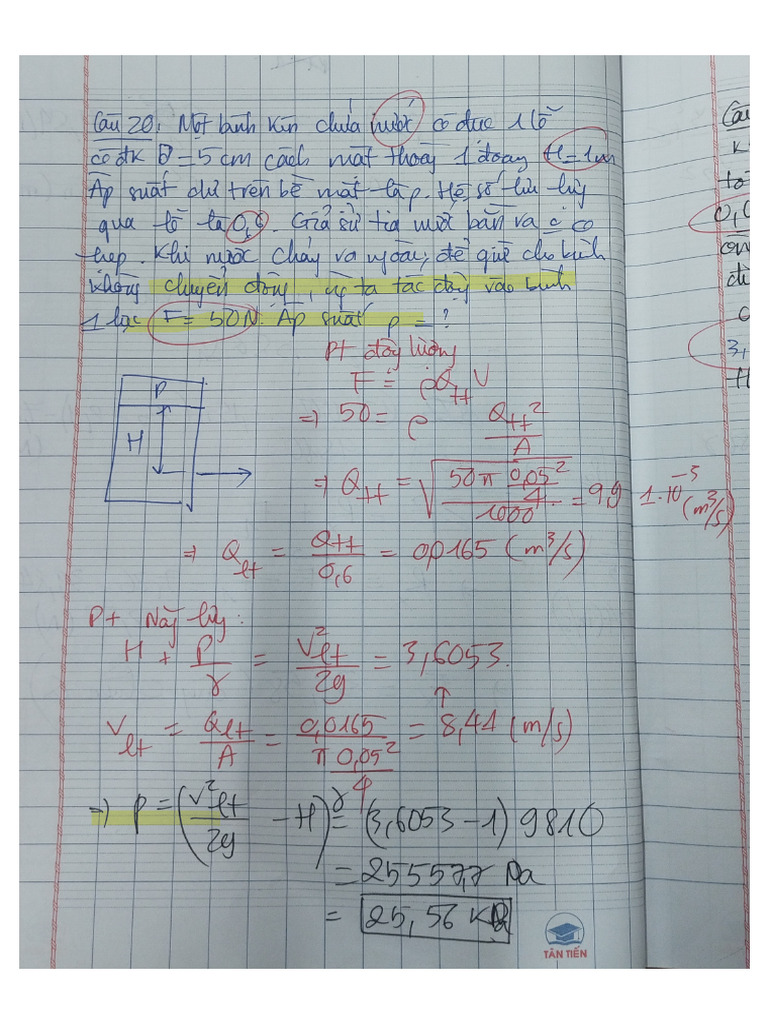 Câu 20. Một bình kín chứa nước có đục 1 lỗ
có đk D = 5 cm cách mặt thoáng 1 đoạn H = 1m
Áp suất dư trên bề mặt là p. Hệ số lưu lượng
qua lỗ là 0,6. Giả sử tia nước bắn ra có
hẹp. Khi nước chảy ra ngoài, để giữ cho bình
không chuyển động, ng ta tác động vào bình
1 lực F = 50N. Áp suất p = ?
Pt động lượng
F = ρQtt V
=> 50 = ρ Qtt² / A
P
H
=> Qtt = √(50π 0,05²/4 / 1000) = 9,9 1.10⁻³ (m³/s)
=> Qlt = Qtt / 0,6 = 0,0165 (m³/s)
Pt Năg lượg:
H + P/γ = V²lt / 2g = 3,6053.
Vlt = Qlt / A = 0,0165 / (π 0,05²/4) = 8,41 (m/s)
=> p = (V²lt / 2g - H) γ = (3,6053 - 1) 9810
= 25557,7 Pa
= 25,56 KPa
TÂN TIẾN
Câu
K
tố
0,6
3,
H